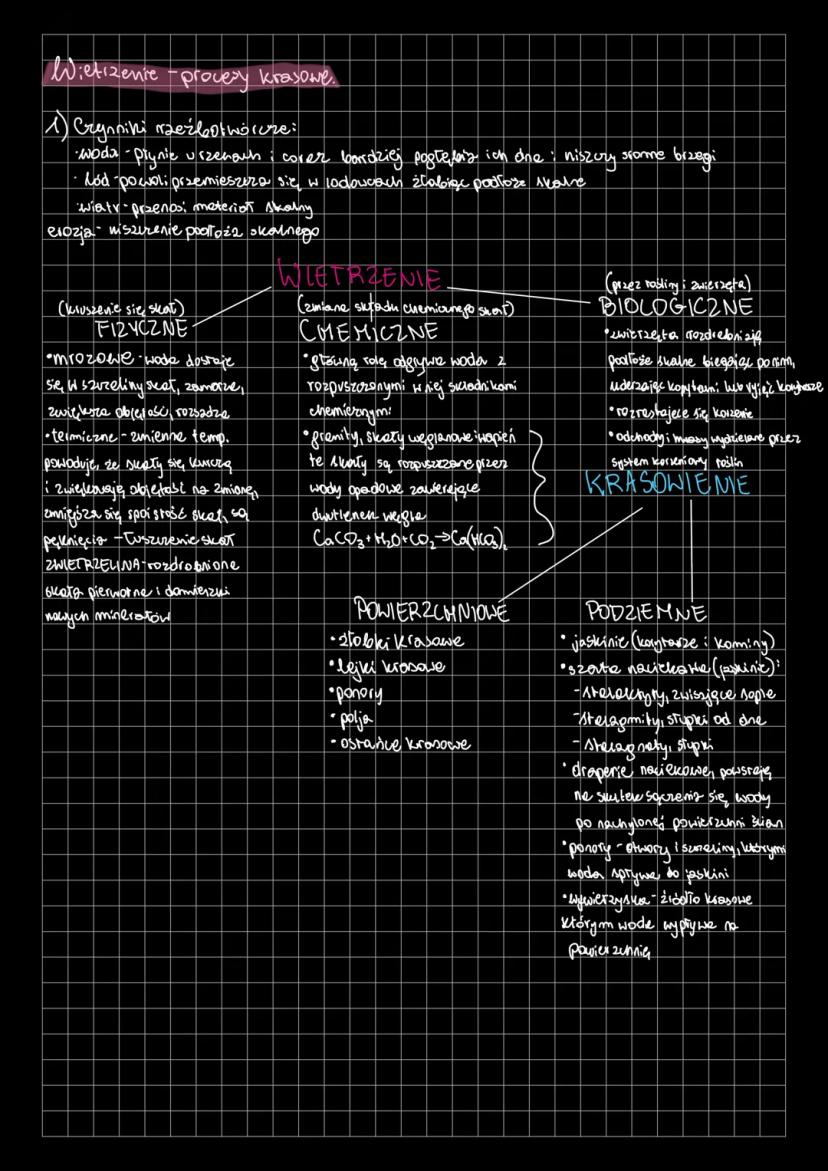 Wietrzenie - procesy krasowe.
1) Czynniki rzeźbotwórcze:
·woda - płynie w rzekach i coraz bardziej pogłębia ich dna i niszczy stronne brzegi
· lód - powoli przemieszcza się w lodowcach żłobiąc podłoże skalne
·wiatr - przenosi materiał skalny
erozja - niszczenie podłoża skalnego
WIETRZENIE
(kruszenie się skał)
FIZYCZNE
•mrozowe - woda dostaje
się w szczeliny skał, zamarza,
zwiększa objętość, rozsadza
•termiczne - zmienna temp.
powoduje, że skały się kurczą
i zwiększają objętość na zmianę,
zmniejsza się spoistość skał, są
pęknięcia - łuszczenie skał
ZWIETRZELINA - rozdrobnione
skała pierwotna i domieszki
nowych minerałów
(zmiana składu chemicznego skał)
CHEMICZNE
•główną rolę odgrywa woda z
rozpuszczonymi w niej składnikami
chemicznymi
•granity, skały węglanowe: wapień
te skały są rozpuszczane przez
wody opadowe zawierające
dwutlenek węgla
CaCO₃ + H₂O + CO₂ → Ca(HCO₃)₂
(przez rośliny i zwierzęta)
BIOLOGICZNE
•zwierzęta rozdrabniają
podłoże skalne biegając po nim,
uderzając kopytami lub ryjąc korytarze
•rozrastające się korzenie
•odchody i kwasy wydzielane przez
system korzeniowy roślin
KRASOWIENIE
POWIERZCHNIOWE
•żłobki krasowe
•lejki krasowe
•ponory
•polja
•ostańce krasowe
PODZIEMNE
• jaskinie (korytarze i kominy)
•szata naciekowa (jaskinie):
-stalaktyty, zwisające sople
-stalagmity, słupki od dna
-stalagnaty, słupki
• draperie naciekowe, powstają
na skutek sączenia się wody
po nachylonej powierzchni ścian
•ponory - otwory i szczeliny, którymi
woda spływa do jaskini
•wywierzyska - źródło krasowe
którym woda wypływa na
powierzchnię